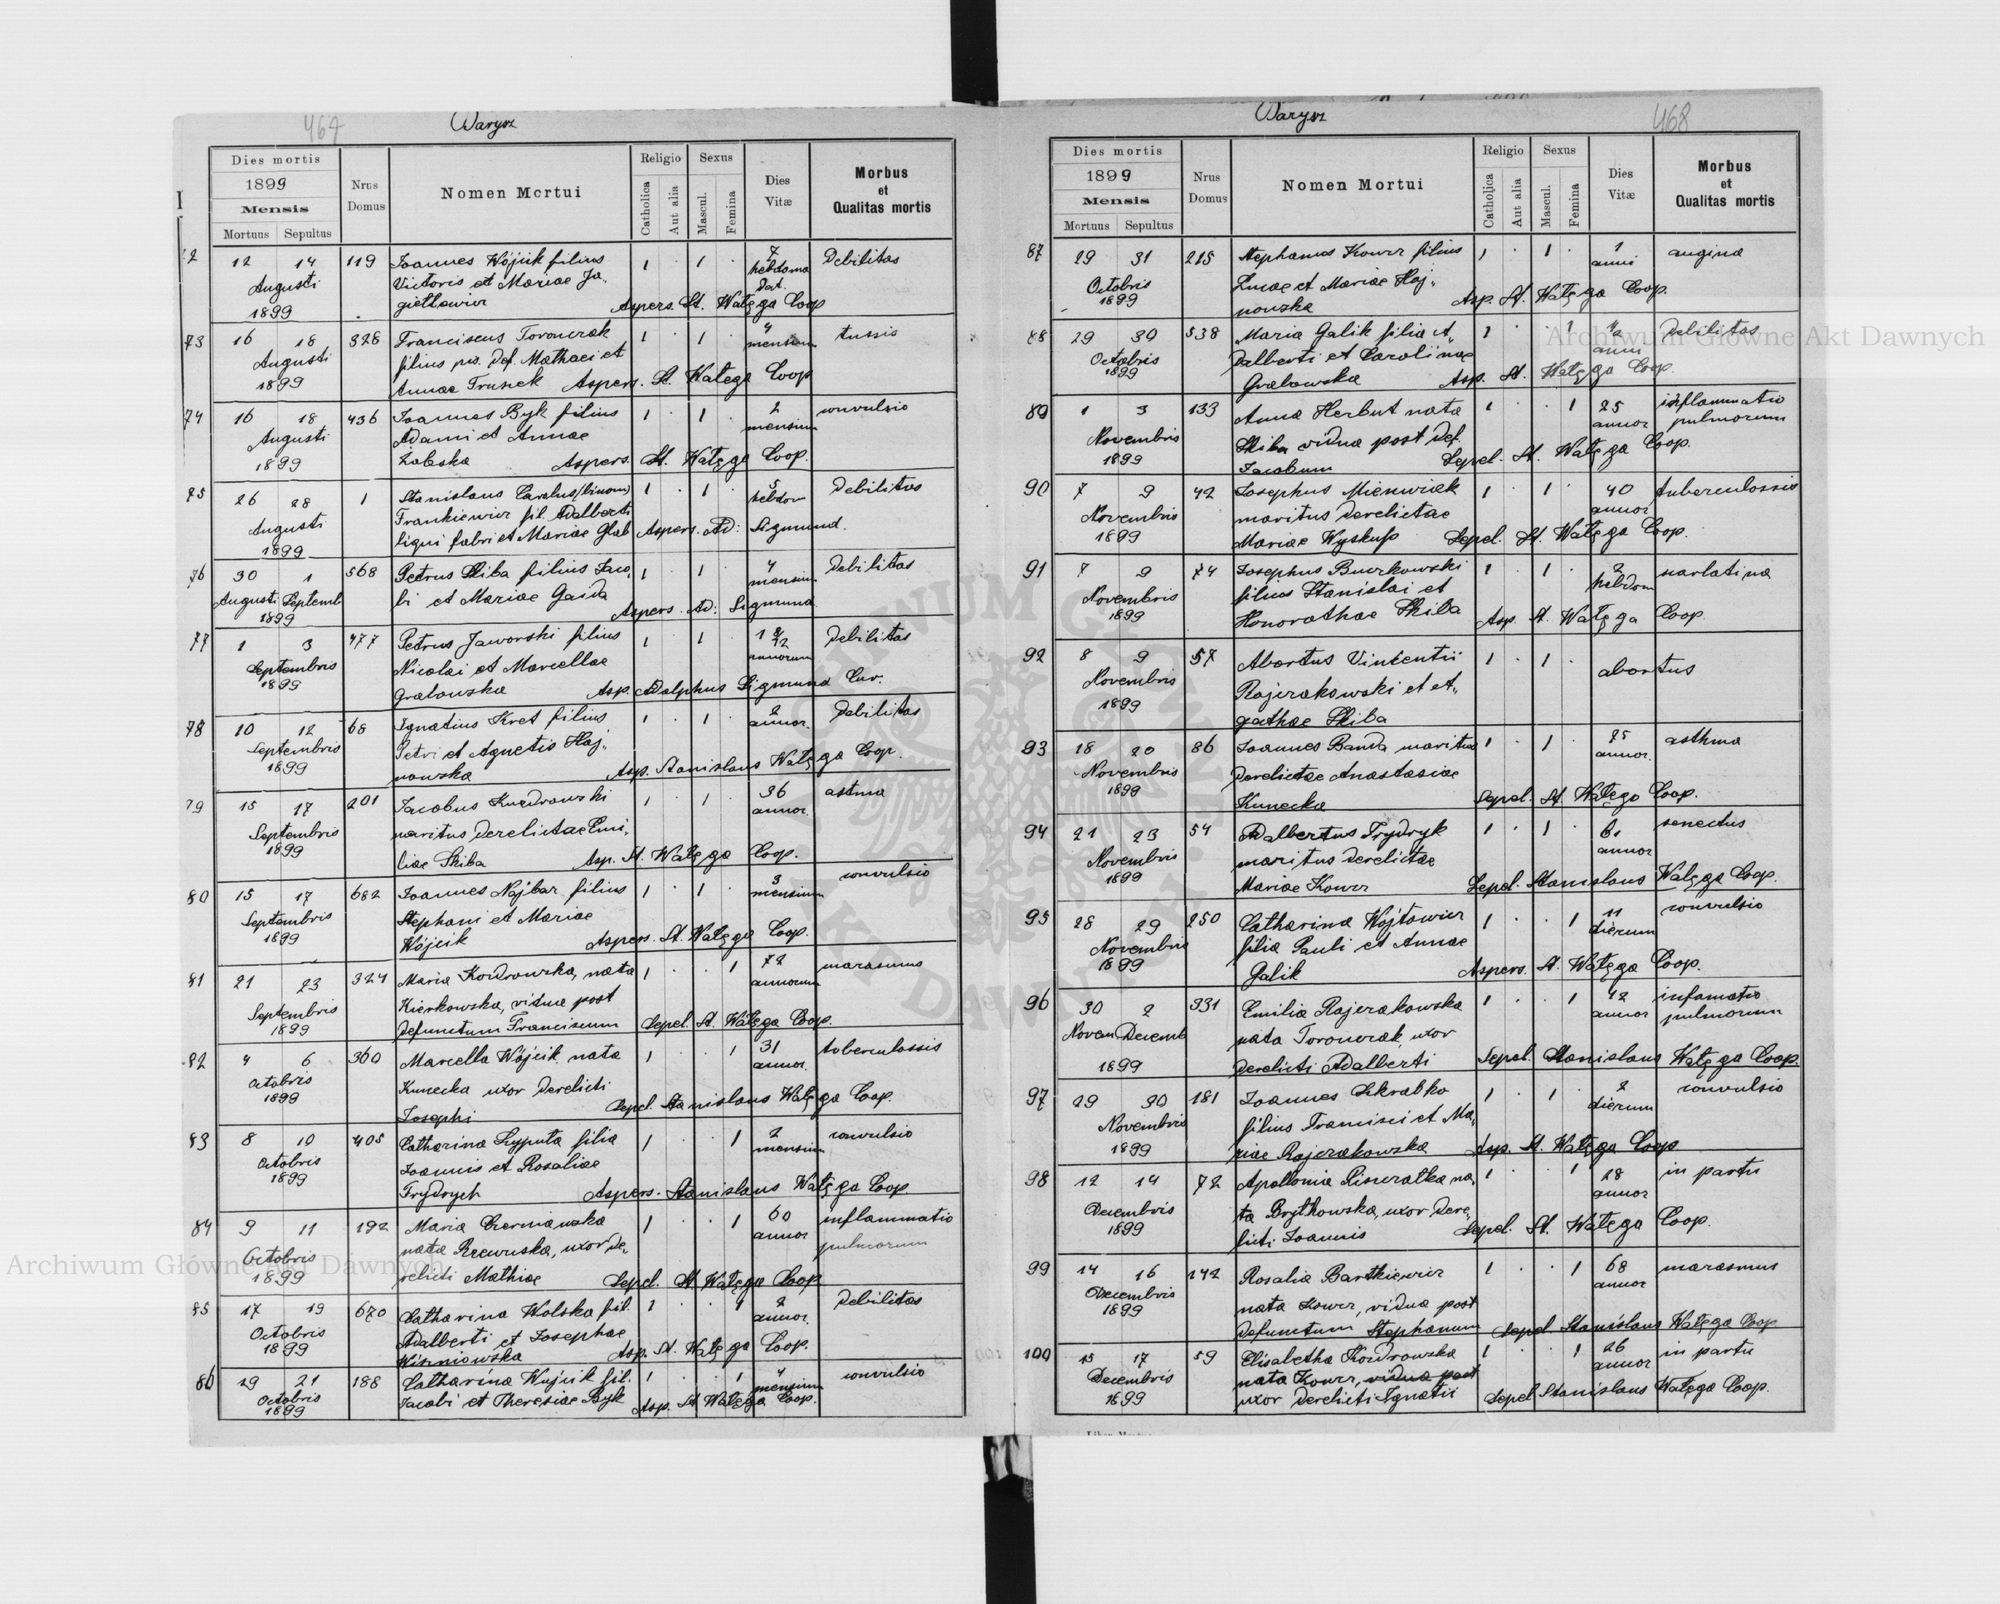 467
Barysz
Dies mortis
1899
Mensis
Mortuus Sepultus
Nrus Domus
Nomen Mortui
Religio
Catholica
Aut alia
Sexus
Mascul.
Femina
Dies Vitæ
Morbus
et
Qualitas mortis
12 14 119 Joannes Wójcik filius 1 . 1 . 7 Debilitas
Augusti Victoris et Mariae Ja- hebdoma
1899 giettowicz Aspers. St. Wałęga Coop
73 16 18 328 Franciscus Toronczak 1 . 1 . 4 tussis
Augusti filius pr. def. Mathaei et mensium
1899 Annae Trusiek Aspers. St. Wałęga Coop
74 16 18 436 Joannes Byk filius 1 . 1 . 2 convulsio
Augusti Adami et Annae mensium
1899 Zaleska Aspers. St. Wałęga Coop.
75 26 28 1 Stanislaus Carolus (binom) 1 . 1 . 5 Debilitas
Augusti Frankiewicz fil. Adalberti hebdom
1899 ligni fabri et Mariae Glab Aspers. Ad: Zigmund.
76 30 1 568 Petrus Skiba filius Jaco- 1 . 1 . 4 Debilitas
Augusti Septemb bi et Mariae Gaida mensium
1899 Aspers. Ad: Zigmund
77 1 3 477 Petrus Jaworski filius 1 . 1 Debilitas
Septembris Nicolai et Marcellae annorum
1899 Grabowska Asp. Adolphus Zigmund Cur.
78 10 12 68 Ignatius Kret filius 1 . 1 . 2 Debilitas
Septembris Petri et Agnetis Haj- annor.
1899 nowska Asp. Stanislaus Wałęga Coop.
79 15 17 201 Jacobus Kudrowski 1 . 1 . 36 astma
Septembris maritus derelictae Emi- annor.
1899 liae Skiba Asp. St. Wałęga Coop.
80 15 17 682 Joannes Najbar filius 1 . 1 . 3 convulsio
Septembris Stephani et Mariae mensium
1899 Wójcik Aspers. St. Wałęga Coop.
81 21 23 324 Maria Kozdrowska, nata 1 . . 1 72 marasmus
Septembris Kierkowska, vidua post annorum
1899 defunctum Franciscum Sepel. St. Wałęga Coop.
82 4 6 360 Marcella Wójcik nata 1 . . 1 31 tuberculossis
Octobris Kunecka uxor derelicti annor.
1899 Josephi Sepel. Stanislaus Wałęga Coop.
83 8 10 405 Catharina Szyputa filia 1 . . 1 2 convulsio
Octobris Joannis et Rosaliae mensium
1899 Frydrych Aspers. Stanislaus Wałęga Coop
84 9 11 192 Maria Czerniawska 1 . . 1 60 inflammatio
Octobris nata Rzewuska, uxor de- annor pulmorum
1899 relicti Mathiae Sepel. St. Wałęga Coop
85 17 19 670 Catharina Wolska fil. 1 . . 1 2 Debilitas
Octobris Adalberti et Josephae annor.
1899 Wiśniowska Asp. St. Wałęga Coop.
86 19 21 188 Catharina Wujcik fil. 1 . . 1 4 convulsio
Octobris Jacobi et Theresiae Byk mensium
1899 Asp. St. Wałęga Coop.
468
Barysz
Dies mortis
1899
Mensis
Mortuus Sepultus
Nrus Domus
Nomen Mortui
Religio
Catholica
Aut alia
Sexus
Mascul.
Femina
Dies Vitæ
Morbus
et
Qualitas mortis
87 29 31 215 Stephanus Kowcz filius 1 . 1 . 1 angina
Octobris Lucae et Mariae Haj- anni
1899 nowska Asp. St. Wałęga Coop.
88 29 30 538 Maria Galik filia A- 1 . . 1 Debilitas
Octobris dalberti et Carolinae anni
1899 Grabowska Asp. St. Wałęga Coop.
89 1 3 133 Anna Herbut nata 1 . . 1 25 inflammatio
Novembris Skiba vidua post def. annor pulmorum
1899 Jacobum Sepel. St. Wałęga Coop.
90 7 9 42 Josephus Mienwiek 1 . 1 . 40 tuberculossis
Novembris maritus derelictae annor
1899 Mariae Wyskup Sepel. St. Wałęga Coop.
91 7 9 74 Josephus Buczkowski 1 . 1 . 2 scarlatina
Novembris filius Stanislai et hebdom
1899 Honorathae Skiba Asp. St. Wałęga Coop.
92 8 9 57 Abortus Vincentii 1 . 1 . abortus
Novembris Rajczakowski et A-
1899 gathae Skiba
93 18 20 86 Joannes Banda maritus 1 . 1 . 75 asthma
Novembris derelictae Anastasiae annor.
1899 Kunecka Sepel. St. Wałęga Coop.
94 21 23 54 Adalbertus Frydryk 1 . 1 . 61 senectus
Novembris maritus derelictae annor
1899 Mariae Kowcz Sepel. Stanislaus Wałęga Coop.
95 28 29 250 Catharina Wójtowicz 1 . . 1 11 convulsio
Novembris filia Pauli et Annae dierum
1899 Galik Aspers. St. Wałęga Coop.
96 30 2 331 Emilia Rajczakowska 1 . . 1 42 infamatio
Novem Decemb nata Toronczak, uxor annor pulmorum
1899 derelicti Adalberti Sepel. Stanislaus Wałęga Coop.
97 29 30 181 Joannes Skrabko 1 . 1 . 2 convulsio
Novembris filius Francisci et Ma- dierum
1899 riae Rajczakowska Asp. St. Wałęga Coop
98 12 14 72 Apollonia Pisuratka na- 1 . . 1 28 in partu
Decembris ta Brytkowska, uxor dere- annor
1899 licti Joannis Sepel. St. Wałęga Coop.
99 14 16 142 Rosalia Bartkiewicz 1 . . 1 68 marasmus
Decembris nata Kowcz, vidua post annor
1899 defunctum Stephanum Sepel Stanislaus Wałęga Coop
100 15 17 59 Elisabetha Kozdrowska 1 . . 1 26 in partu
Decembris nata Kowcz, vidua post annor
1899 uxor derelicti Ignatii Sepel Stanislaus Wałęga Coop.
Archiwum Główne Akt Dawnych
Archiwum Główne Akt Dawnych